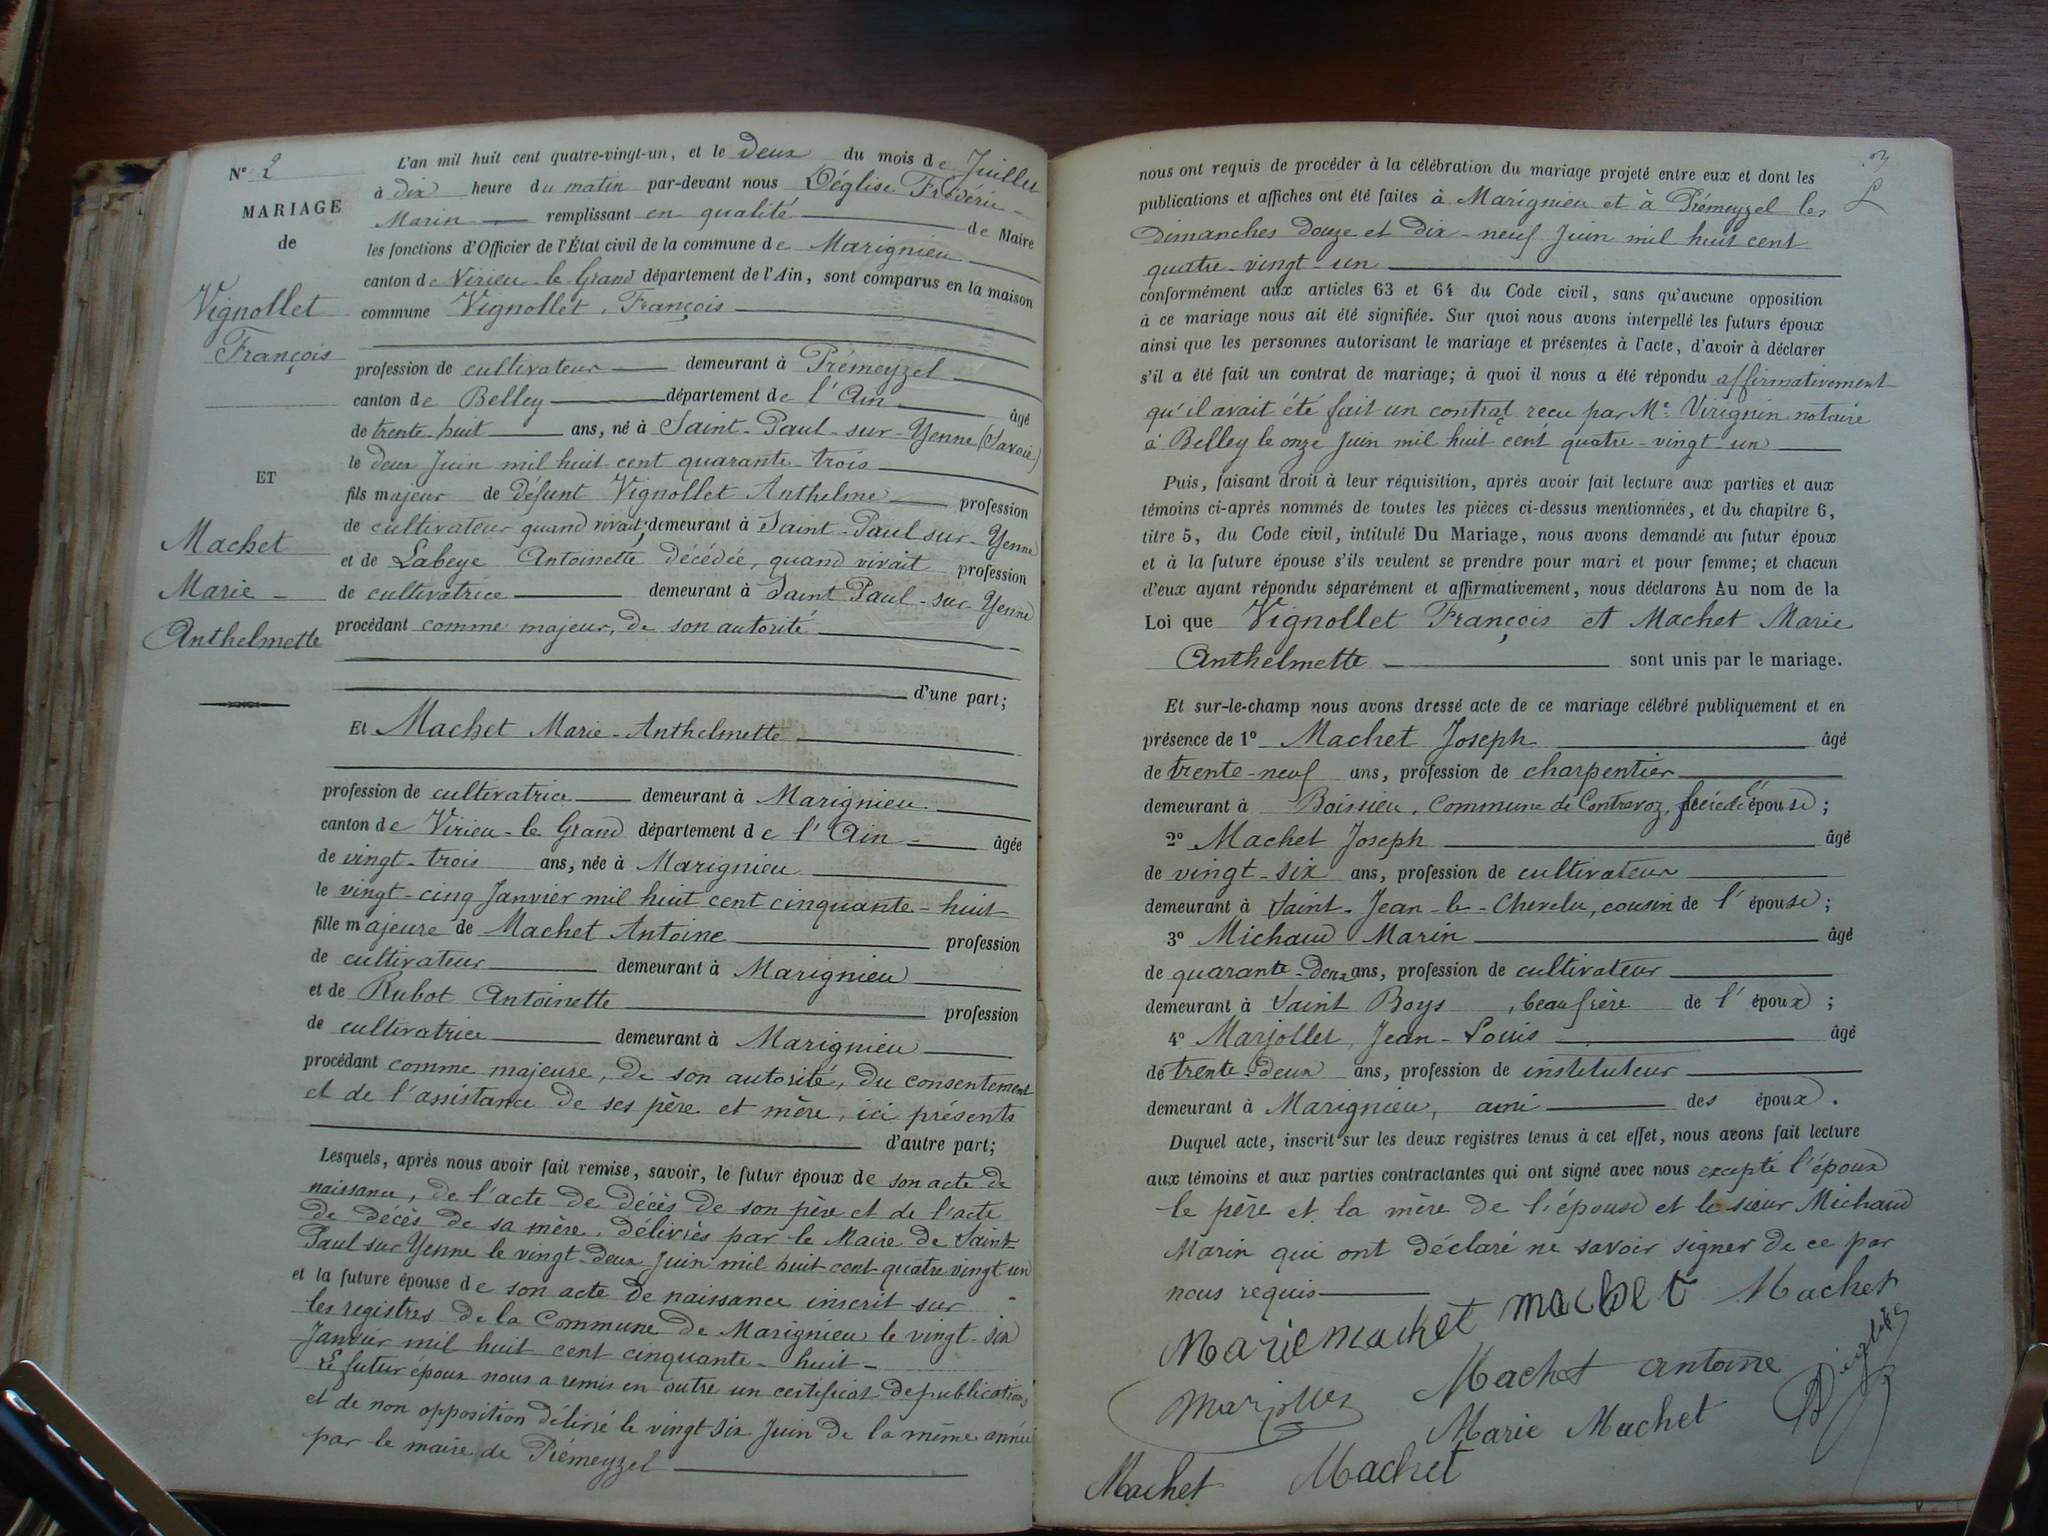 N° 2
MARIAGE
de
Vignollet
François
ET
Machet
Marie
Anthelmette
L'an mil huit cent quatre-vingt-un, et le deux du mois de Juillet
à dix heure du matin par-devant nous Déglise Fréderic
Marin remplissant en qualité de Maire
les fonctions d'Officier de l'État civil de la commune de Marignieu
canton de Virieu-le-Grand département de l'Ain, sont comparus en la maison
commune Vignollet, François
profession de cultivateur demeurant à Prémeyzel
canton de Belley département de l'Ain âgé
de trente-huit ans, né à Saint-Paul-sur-Yenne (Savoie)
le deux Juin mil huit cent quarante-trois
fils majeur de défunt Vignollet Anthelme profession
de cultivateur quand vivait, demeurant à Saint-Paul-sur-Yenne
et de Labeye Antoinette décédée, quand vivait profession
de cultivatrice demeurant à Saint Paul-sur-Yenne
procédant comme majeur, de son autorité
d'une part;
Et Machet Marie-Anthelmette
profession de cultivatrice demeurant à Marignieu
canton de Virieu-le-Grand département de l'Ain âgée
de vingt-trois ans, née à Marignieu
le vingt-cinq Janvier mil huit cent cinquante-huit
fille majeure de Machet Antoine profession
de cultivateur demeurant à Marignieu
et de Rubot Antoinette profession
de cultivatrice demeurant à Marignieu
procédant comme majeure, de son autorité, du consentement
et de l'assistance de ses père et mère, ici présents
d'autre part;
Lesquels, après nous avoir fait remise, savoir, le futur époux de son acte de
naissance, de l'acte de décès de son père et de l'acte
de décès de sa mère, délivrés par le Maire de Saint-
Paul sur Yenne le vingt-deux Juin mil huit cent quatre vingt un
et la future épouse de son acte de naissance inscrit sur
les registres de la Commune de Marignieu le vingt-six
Janvier mil huit cent cinquante-huit-
Le futur époux nous a remis en outre un certificat de publications
et de non opposition délivré le vingt six Juin de la même année
par le maire de Prémeyzel
nous ont requis de procéder à la célébration du mariage projeté entre eux et dont les
publications et affiches ont été faites à Marignieu et à Prémeyzel les
Dimanches douze et dix-neuf Juin mil huit cent
quatre-vingt-un
conformément aux articles 63 et 64 du Code civil, sans qu'aucune opposition
à ce mariage nous ait été signifiée. Sur quoi nous avons interpellé les futurs époux
ainsi que les personnes autorisant le mariage et présentes à l'acte, d'avoir à déclarer
s'il a été fait un contrat de mariage; à quoi il nous a été répondu affirmativement
qu'il avait été fait un contrat reçu par Me Virignin notaire
à Belley le onze Juin mil huit cent quatre-vingt-un
Puis, faisant droit à leur réquisition, après avoir fait lecture aux parties et aux
témoins ci-après nommés de toutes les pièces ci-dessus mentionnées, et du chapitre 6,
titre 5, du Code civil, intitulé Du Mariage, nous avons demandé au futur époux
et à la future épouse s'ils veulent se prendre pour mari et pour femme; et chacun
d'eux ayant répondu séparément et affirmativement, nous déclarons Au nom de la
Loi que Vignollet François et Machet Marie
Anthelmette sont unis par le mariage.
Et sur-le-champ nous avons dressé acte de ce mariage célébré publiquement et en
présence de 1° Machet Joseph âgé
de trente-neuf ans, profession de charpentier
demeurant à Boissieu, Commune de Contrevoz, épouse;
2° Machet Joseph âgé
de vingt-six ans, profession de cultivateur
demeurant à Saint-Jean-le-Chevelu, cousin de l'épouse;
3° Michaud Marin âgé
de quarante-deux ans, profession de cultivateur
demeurant à Saint Boys, beau frère de l'époux;
4° Marjollet, Jean-Louis âgé
de trente-deux ans, profession de instituteur
demeurant à Marignieu, ami des époux.
Duquel acte, inscrit sur les deux registres tenus à cet effet, nous avons fait lecture
aux témoins et aux parties contractantes qui ont signé avec nous excepté l'époux
le père et la mère de l'épouse et le sieur Michaud
Marin qui ont déclaré ne savoir signer de ce par
nous requis
Marie Machet machet Machet
Marjollet Machet antoine Déglise
Marie Machet
Machet Machet